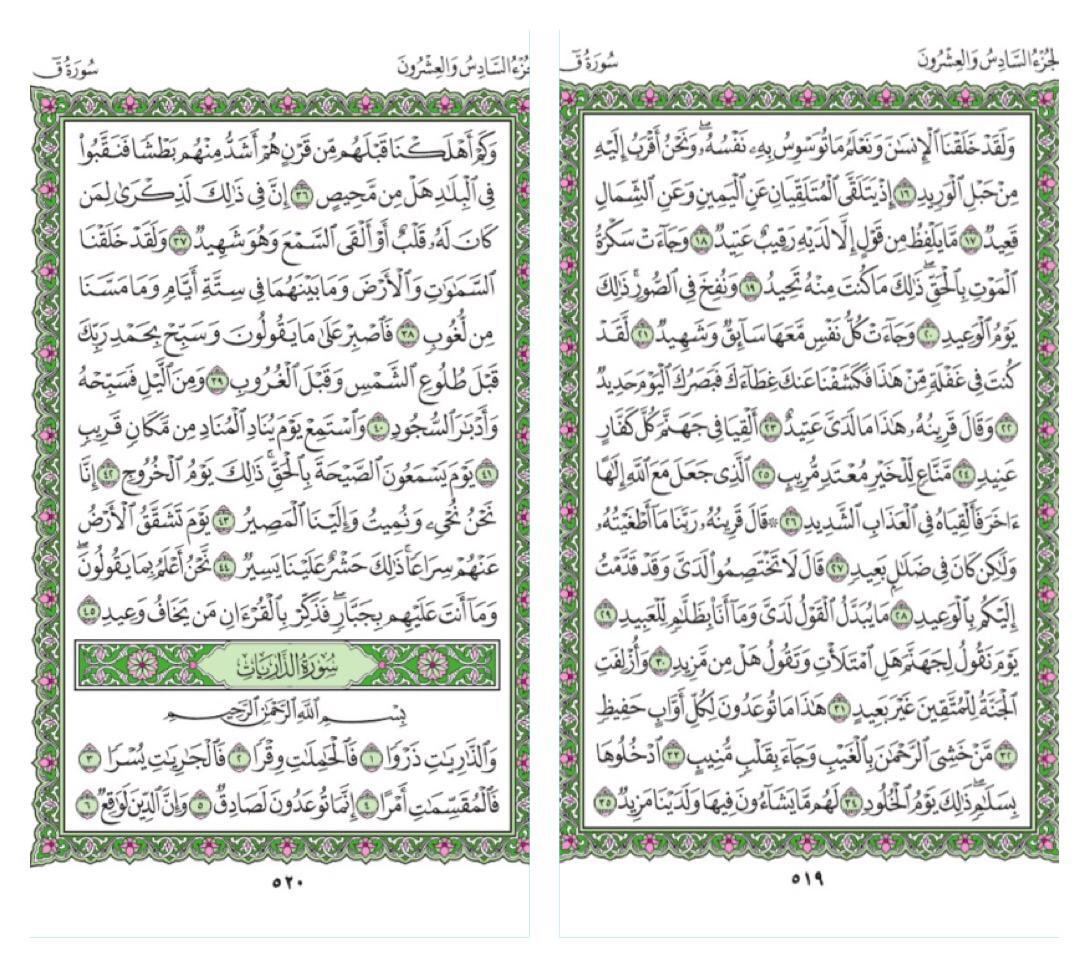 الجُزْءُ السَّادِسُ وَالعِشْرُونَ
سُورَةُ قٓ
وَلَقَدْ خَلَقْنَا ٱلْإِنسَٰنَ وَنَعْلَمُ مَا تُوَسْوِسُ بِهِۦ نَفْسُهُۥۖ وَنَحْنُ أَقْرَبُ إِلَيْهِ
مِنْ حَبْلِ ٱلْوَرِيدِ ١٦ إِذْ يَتَلَقَّى ٱلْمُتَلَقِّيَانِ عَنِ ٱلْيَمِينِ وَعَنِ ٱلشِّمَالِ
قَعِيدٌ ١٧ مَّا يَلْفِظُ مِن قَوْلٍ إِلَّا لَدَيْهِ رَقِيبٌ عَتِيدٌ ١٨ وَجَآءَتْ سَكْرَةُ
ٱلْمَوْتِ بِٱلْحَقِّۖ ذَٰلِكَ مَا كُنتَ مِنْهُ تَحِيدُ ١٩ وَنُفِخَ فِى ٱلصُّورِۚ ذَٰلِكَ
يَوْمُ ٱلْوَعِيدِ ٢٠ وَجَآءَتْ كُلُّ نَفْسٍ مَّعَهَا سَآئِقٌ وَشَهِيدٌ ٢١ لَّقَدْ
كُنتَ فِى غَفْلَةٍ مِّنْ هَٰذَا فَكَشَفْنَا عَنكَ غِطَآءَكَ فَبَصَرُكَ ٱلْيَوْمَ حَدِيدٌ
٢٢ وَقَالَ قَرِينُهُۥ هَٰذَا مَا لَدَىَّ عَتِيدٌ ٢٣ أَلْقِيَا فِى جَهَنَّمَ كُلَّ كَفَّارٍ
عَنِيدٍ ٢٤ مَّنَّاعٍ لِّلْخَيْرِ مُعْتَدٍ مُّرِيبٍ ٢٥ ٱلَّذِى جَعَلَ مَعَ ٱللَّهِ إِلَٰهًا
ءَاخَرَ فَأَلْقِيَاهُ فِى ٱلْعَذَابِ ٱلشَّدِيدِ ٢٦ ۞ قَالَ قَرِينُهُۥ رَبَّنَا مَآ أَطْغَيْتُهُۥ
وَلَٰكِن كَانَ فِى ضَلَٰلٍۭ بَعِيدٍ ٢٧ قَالَ لَا تَخْتَصِمُوا۟ لَدَىَّ وَقَدْ قَدَّمْتُ
إِلَيْكُم بِٱلْوَعِيدِ ٢٨ مَا يُبَدَّلُ ٱلْقَوْلُ لَدَىَّ وَمَآ أَنَا۠ بِظَلَّٰمٍ لِّلْعَبِيدِ ٢٩
يَوْمَ نَقُولُ لِجَهَنَّمَ هَلِ ٱمْتَلَأْتِ وَتَقُولُ هَلْ مِن مَّزِيدٍ ٣٠ وَأُزْلِفَتِ
ٱلْجَنَّةُ لِلْمُتَّقِينَ غَيْرَ بَعِيدٍ ٣١ هَٰذَا مَا تُوعَدُونَ لِكُلِّ أَوَّابٍ حَفِيظٍ
٣٢ مَّنْ خَشِىَ ٱلرَّحْمَٰنَ بِٱلْغَيْبِ وَجَآءَ بِقَلْبٍ مُّنِيبٍ ٣٣ ٱدْخُلُوهَا
بِسَلَٰمٍۖ ذَٰلِكَ يَوْمُ ٱلْخُلُودِ ٣٤ لَهُم مَّا يَشَآءُونَ فِيهَا وَلَدَيْنَا مَزِيدٌ ٣٥
٥١٩
جُزْءُ السَّادِسُ وَالعِشْرُونَ
سُورَةُ قٓ
وَكَمْ أَهْلَكْنَا قَبْلَهُم مِّن قَرْنٍ هُمْ أَشَدُّ مِنْهُم بَطْشًا فَنَقَّبُوا۟
فِى ٱلْبِلَٰدِ هَلْ مِن مَّحِيصٍ ٣٦ إِنَّ فِى ذَٰلِكَ لَذِكْرَىٰ لِمَن
كَانَ لَهُۥ قَلْبٌ أَوْ أَلْقَى ٱلسَّمْعَ وَهُوَ شَهِيدٌ ٣٧ وَلَقَدْ خَلَقْنَا
ٱلسَّمَٰوَٰتِ وَٱلْأَرْضَ وَمَا بَيْنَهُمَا فِى سِتَّةِ أَيَّامٍ وَمَا مَسَّنَا
مِن لُّغُوبٍ ٣٨ فَٱصْبِرْ عَلَىٰ مَا يَقُولُونَ وَسَبِّحْ بِحَمْدِ رَبِّكَ
قَبْلَ طُلُوعِ ٱلشَّمْسِ وَقَبْلَ ٱلْغُرُوبِ ٣٩ وَمِنَ ٱلَّيْلِ فَسَبِّحْهُ
وَأَدْبَٰرَ ٱلسُّجُودِ ٤٠ وَٱسْتَمِعْ يَوْمَ يُنَادِ ٱلْمُنَادِ مِن مَّكَانٍ قَرِيبٍ
٤١ يَوْمَ يَسْمَعُونَ ٱلصَّيْحَةَ بِٱلْحَقِّۚ ذَٰلِكَ يَوْمُ ٱلْخُرُوجِ ٤٢ إِنَّا
نَحْنُ نُحْىِۦ وَنُمِيتُ وَإِلَيْنَا ٱلْمَصِيرُ ٤٣ يَوْمَ تَشَقَّقُ ٱلْأَرْضُ
عَنْهُمْ سِرَاعًاۚ ذَٰلِكَ حَشْرٌ عَلَيْنَا يَسِيرٌ ٤٤ نَّحْنُ أَعْلَمُ بِمَا يَقُولُونَۖ
وَمَآ أَنتَ عَلَيْهِم بِجَبَّارٍۖ فَذَكِّرْ بِٱلْقُرْءَانِ مَن يَخَافُ وَعِيدِ ٤٥
سُورَةُ الذَّارِيَاتِ
بِسْمِ ٱللَّهِ ٱلرَّحْمَٰنِ ٱلرَّحِيمِ
وَٱلذَّٰرِيَٰتِ ذَرْوًا ١ فَٱلْحَٰمِلَٰتِ وِقْرًا ٢ فَٱلْجَٰرِيَٰتِ يُسْرًا ٣
فَٱلْمُقَسِّمَٰتِ أَمْرًا ٤ إِنَّمَا تُوعَدُونَ لَصَادِقٌ ٥ وَإِنَّ ٱلدِّينَ لَوَٰقِعٌ ٦
٥٢٠